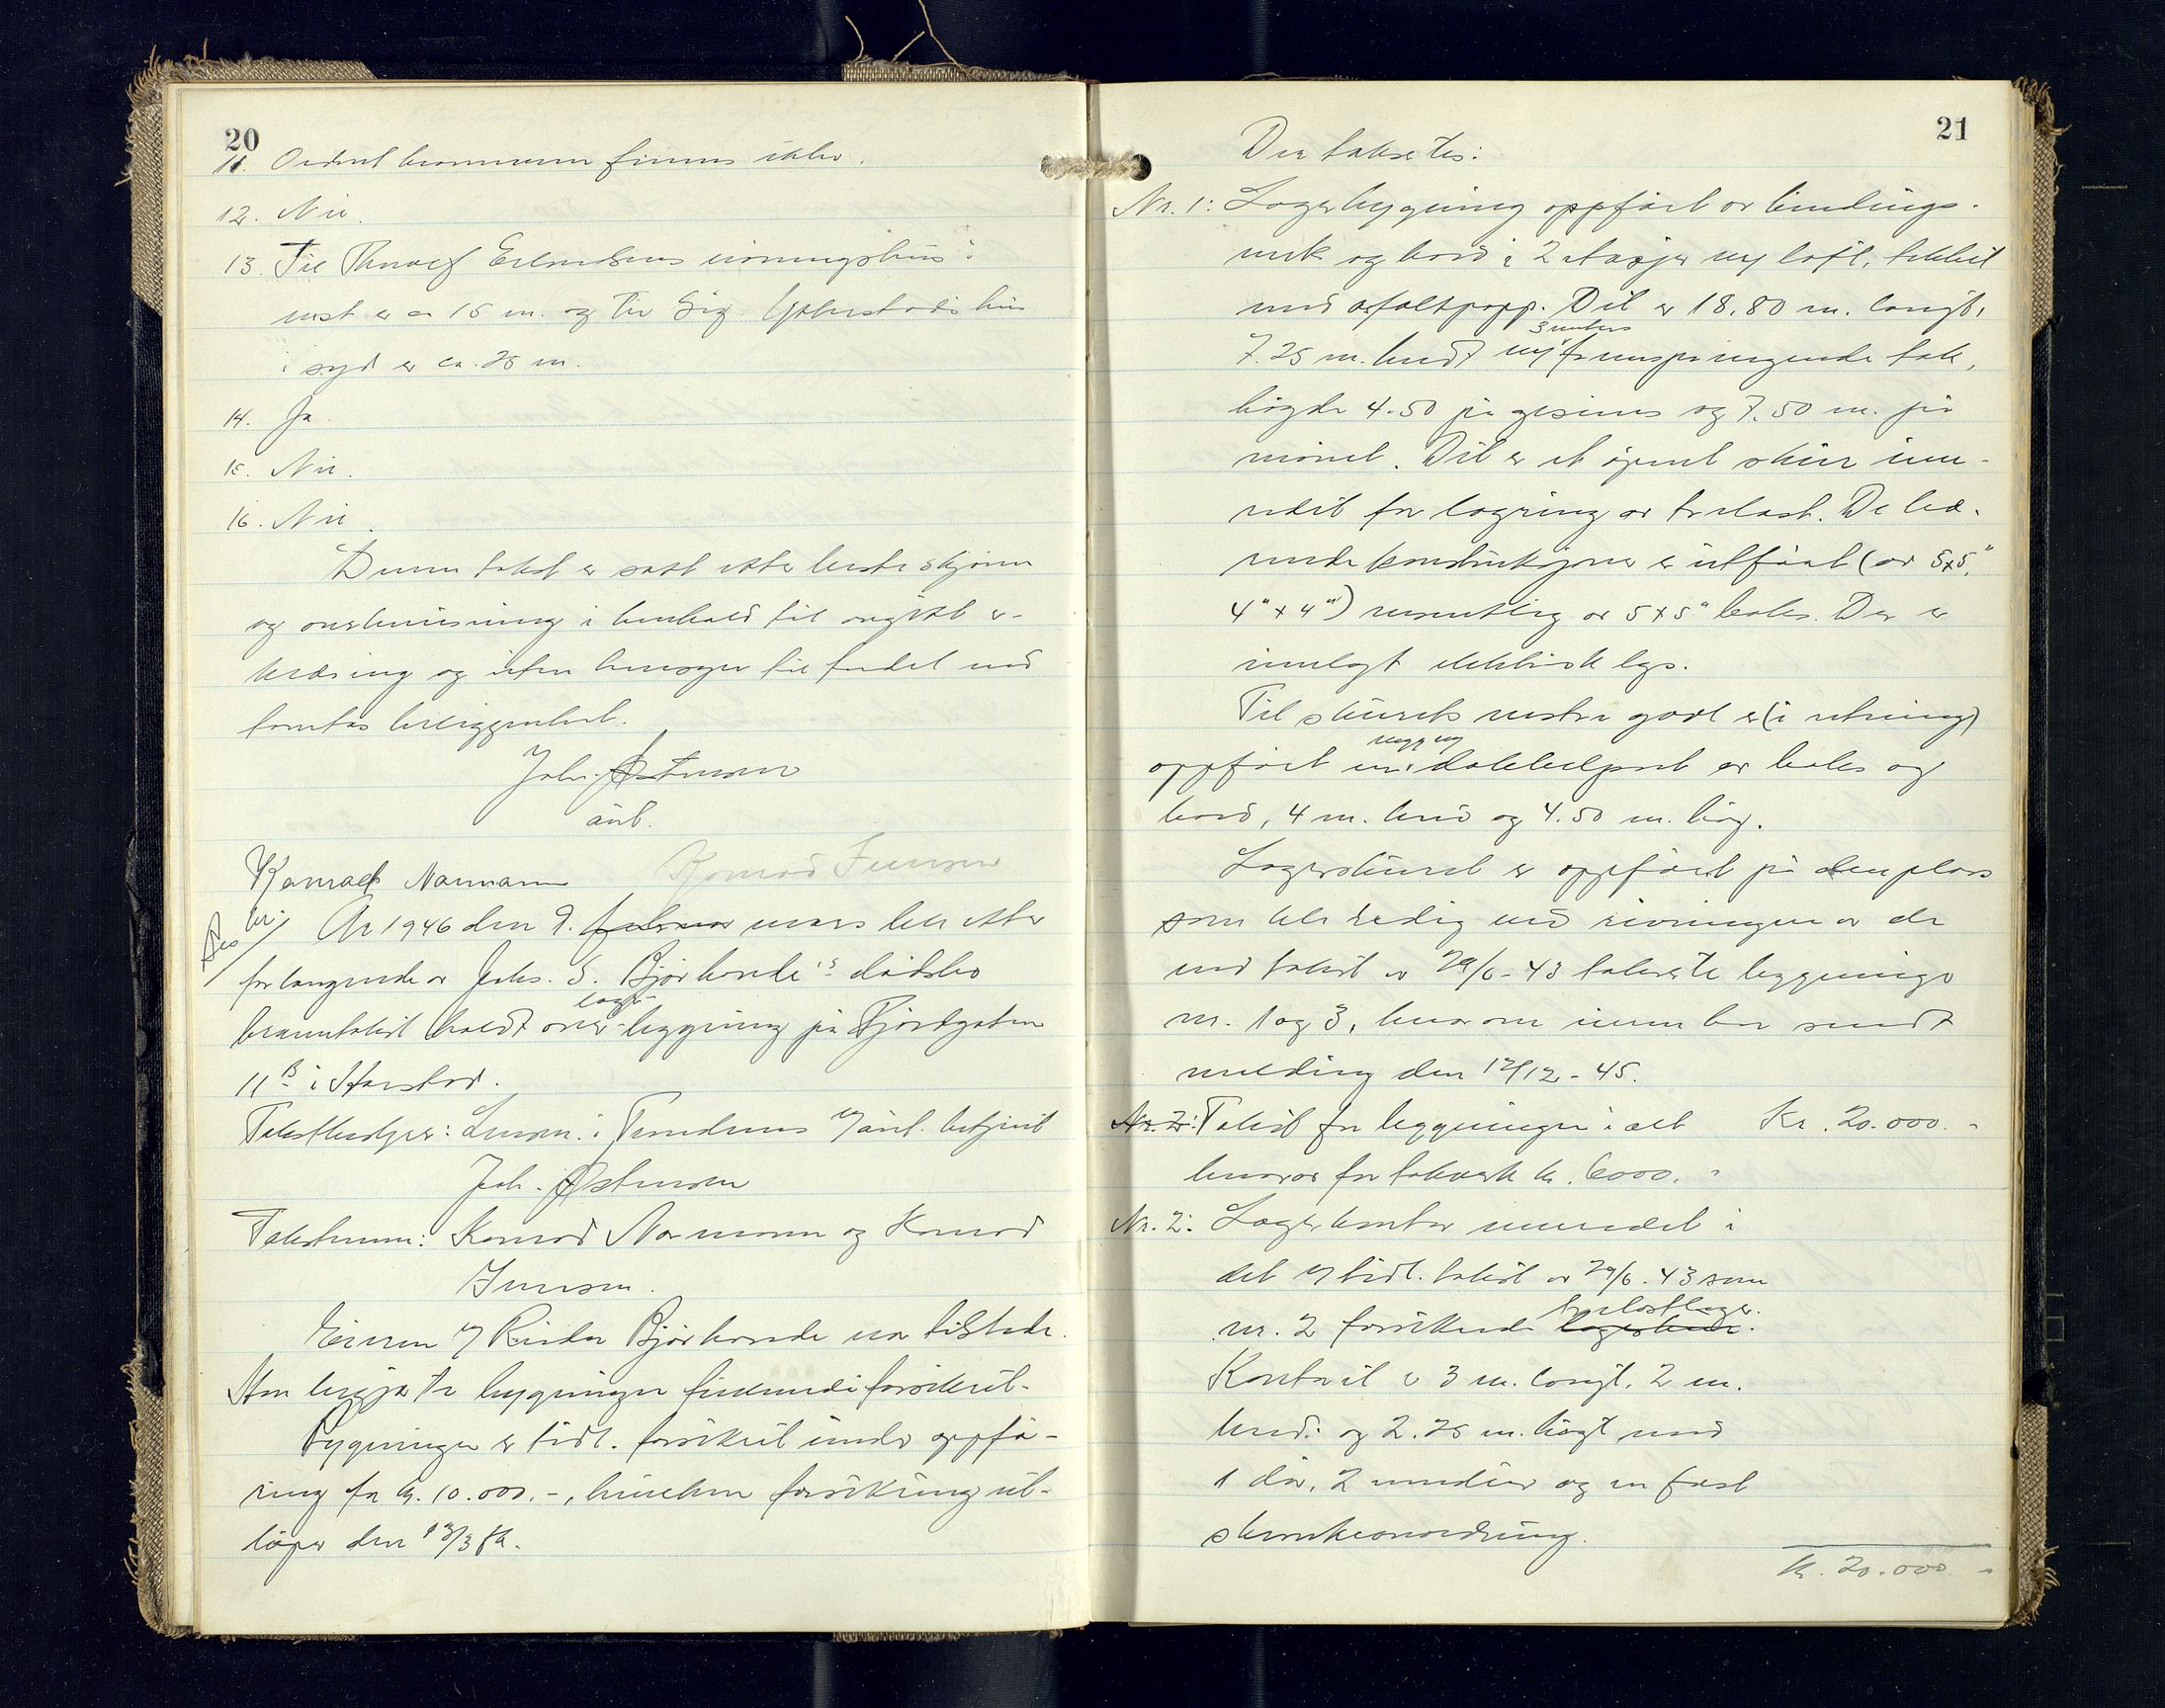 20
11. Ordnet brannvern finnes ikke.
12. Nei.
13. Til Thoralf Erlendsens våningshus i
vest er ca 15 m. og til Sig. hus
i syd er ca. 25 m.
14. Ja.
15. Nei.
16. Nei.
Denne takst er satt etter beste skjønn
og overbevisning i henhold til avgitt er-
klæring og uten hensyn til fordel ved
tomtas beliggenhet.
Joh. Østensen
Konrad Normann Konrad Jenssen
År 1946 den 9. februar mars ble etter
forlangende av Johs. S. Bjørkonde's dødsbo
lager-
branntakst holdt over bygning på Fjordgaten
11 B i Harstad.
Takstbestyrer: Lensm. i Trondenes v/
Joh. Østensen
Takstmenn: Konrad Normann og Konrad
Jenssen.
Eieren v/ Bjørkonde var tilstede.
Han begjærte bygningen forsikret.
Bygningen er tidl. forsikret under oppfø-
ring for kr. 10.000.-, hvilken forsikring ut-
løper den 13/3 
21
Der taksertes:
Nr. 1: Lagerbygning oppført av bindings-
verk og bord i 2 etasjer m/ loft, tekket
med asfaltpapp. Det er 18.80 m. langt,
3 meters
7.25 m. bredt m/ fremspringende tak,
høgde 4.50 på gesims og 7.50 m. på
mønet. Det er et åpent skur inn-
redet for lagring av trelast. De bæ-
rende konstruksjoner er utført (av 5x5"
4" x 4") vesentlig av 5 x 5" boks. Der er
innlagt elektrisk lys.
Til skurets vestre gavl er (i retning)
vegg m/
oppført en dobbelport av boks og
bord, 4 m. bred og 4.50 m. høg.
Lagerskuret er oppført på den plass
som ble ledig ved rivningen av de
ved takst av 29/6-43 takserte bygninger
nr. 1 og 3, hvorom innen ble sendt
melding den 12/12-45.
Nr. 2: Takst for bygningen i alt Kr. 20.000.-
herav for takverk kr. 6000.-
Nr. 2: Lagerkontor innredet i
det v/ tidl. takst av 29/6.43 som
trelastlager.
nr. 2 forsikrede
Kontoret er 3 m. langt, 2 m.
bredt og 2.25 m. høgt med
1 dør, 2 vinduer og en fast
skrankeanordning.
kr. 20.000.-